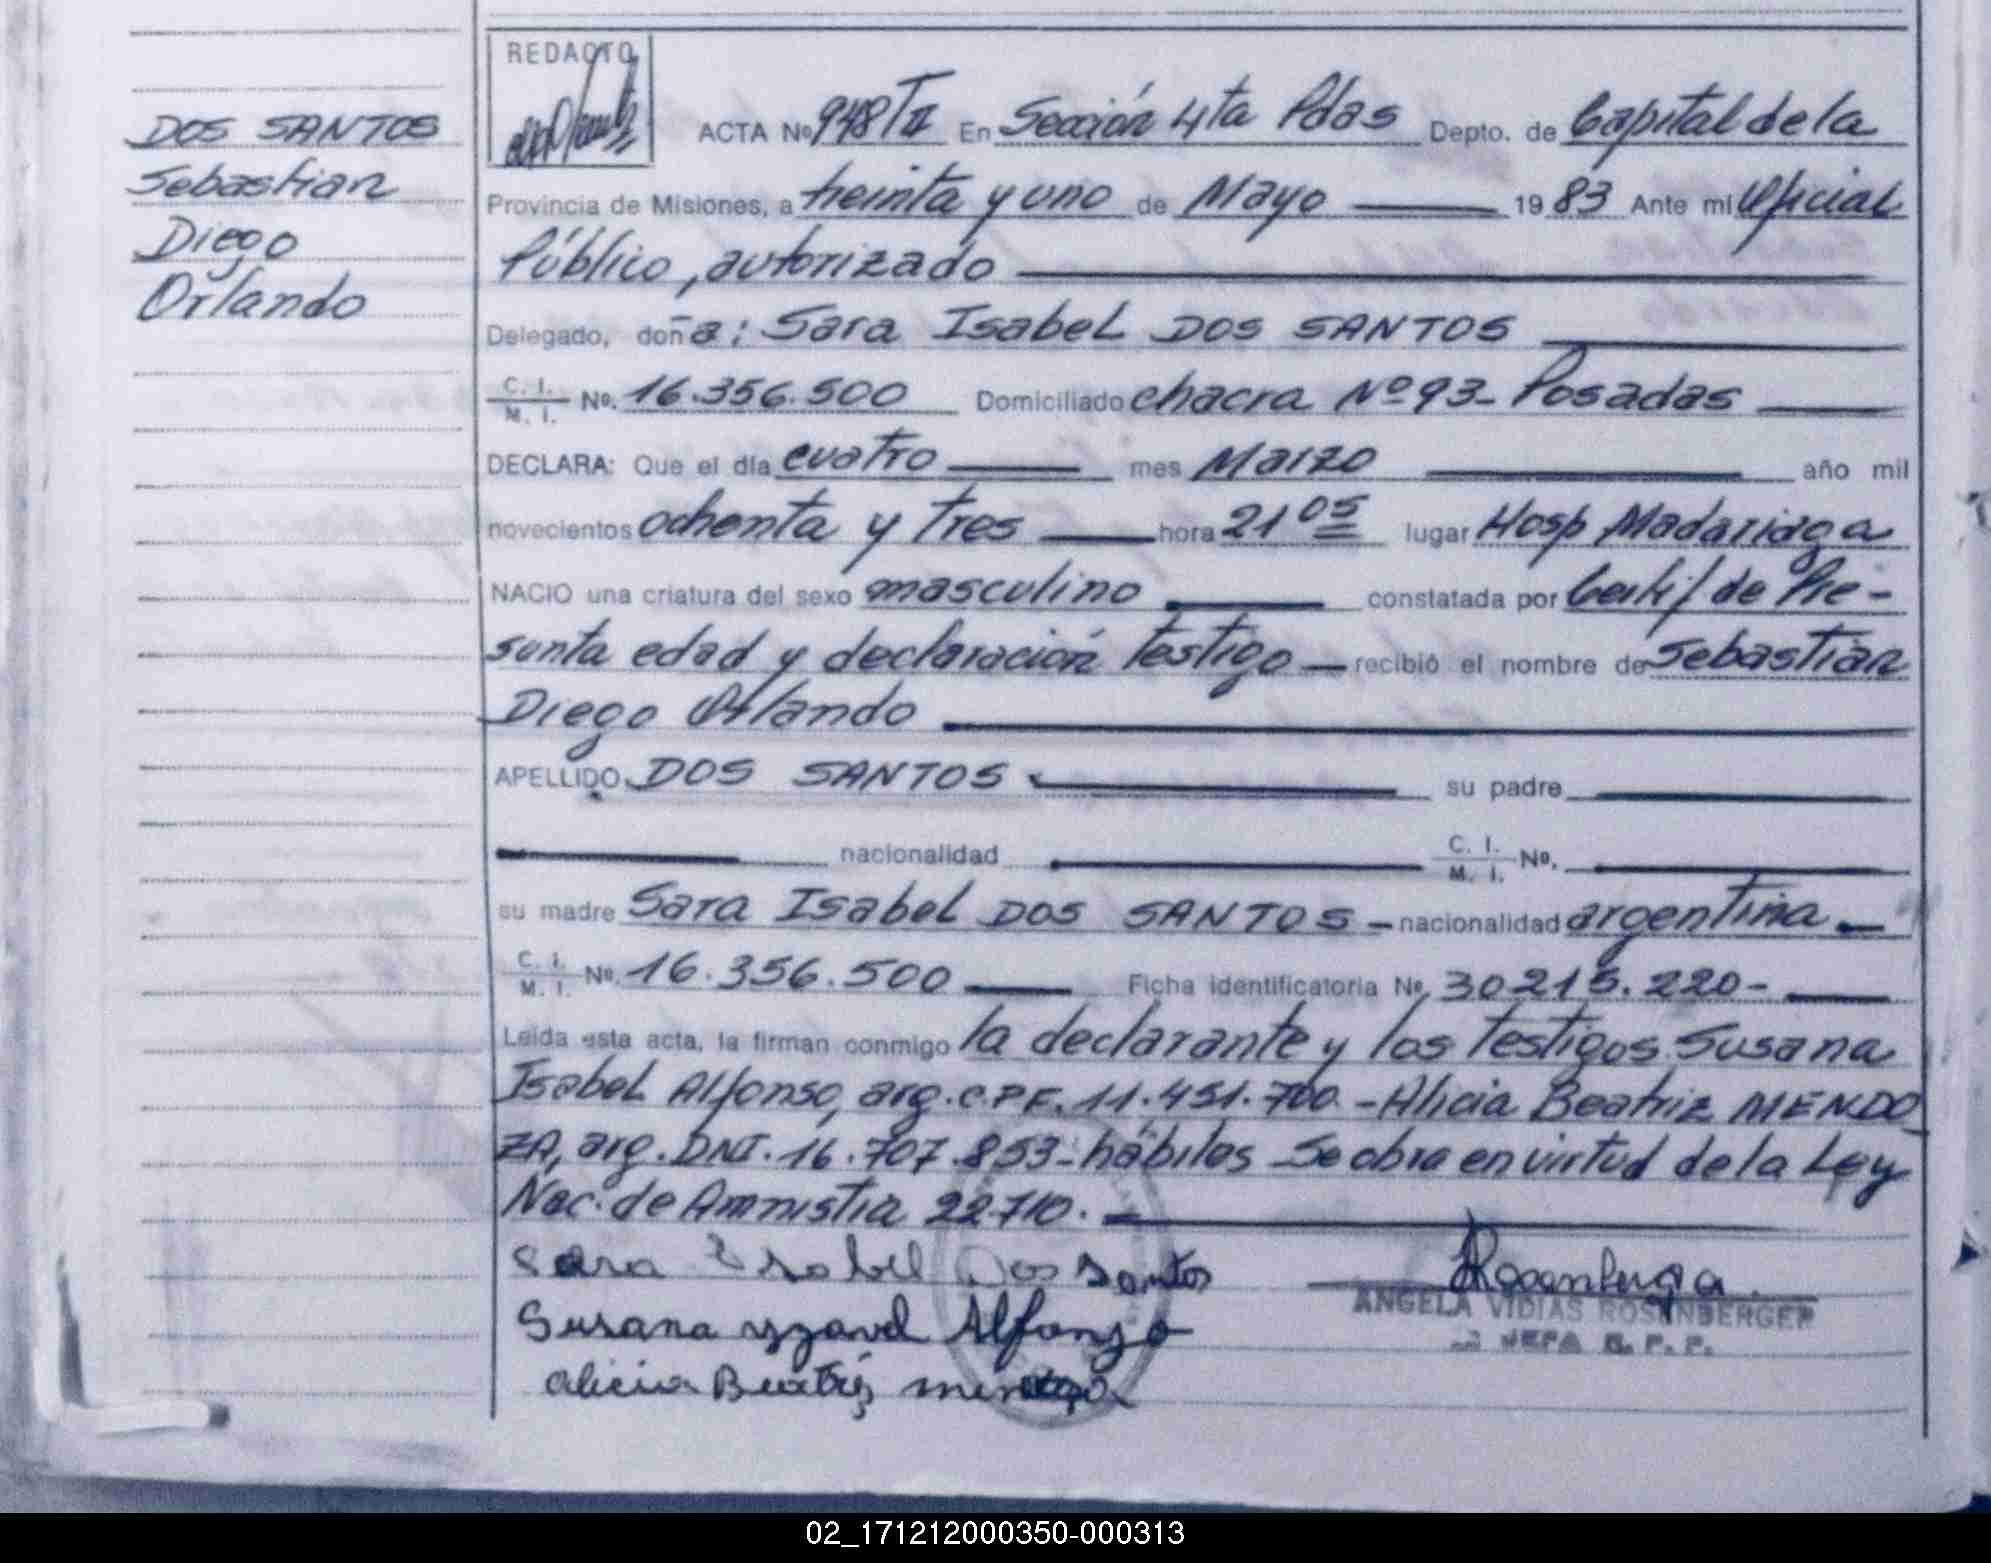 DOS SANTOS
Sebastian
Diego
Orlando
REDACTO
ACTA Nº 948/II En Sección 4ta Pdas Depto. de Capital de la
Provincia de Misiones, a treinta y uno de Mayo 1983 Ante mi Oficial
Público, autorizado
Delegado, doña: Sara Isabel DOS SANTOS
C. I. / M. I. Nº. 16.356.500 Domiciliado chacra Nº 93- Posadas
DECLARA: Que el día cuatro mes Marzo año mil
novecientos ochenta y tres hora 21 05 lugar Hosp Madariaga
NACIO una criatura del sexo masculino constatada por Certif/ de Pre-
sunta edad y declaración testigo recibió el nombre de Sebastián
Diego Orlando
APELLIDO DOS SANTOS su padre
nacionalidad C. I. / M. I. Nº.
su madre Sara Isabel DOS SANTOS - nacionalidad argentina
C. I. / M. I. Nº. 16.356.500 Ficha identificatoria Nº 30.215.220-
Leída esta acta, la firman conmigo la declarante y los testigos Susana
Isabel Alfonso, arg. C.P.F. 11.451.700 - Alicia Beatriz MENDO
ZA, arg. DNI. 16.707.853 - hábiles Se obra en virtud de la Ley
Nac. de Amnistia 22710.
Sara Isabel Dos Santos
Susana yzavel Alfonzo
Alicia Beatriz
Rosenberger
ANGELA VIDIAS ROSENBERGER
JEFA R. P. P.
02_171212000350-000313